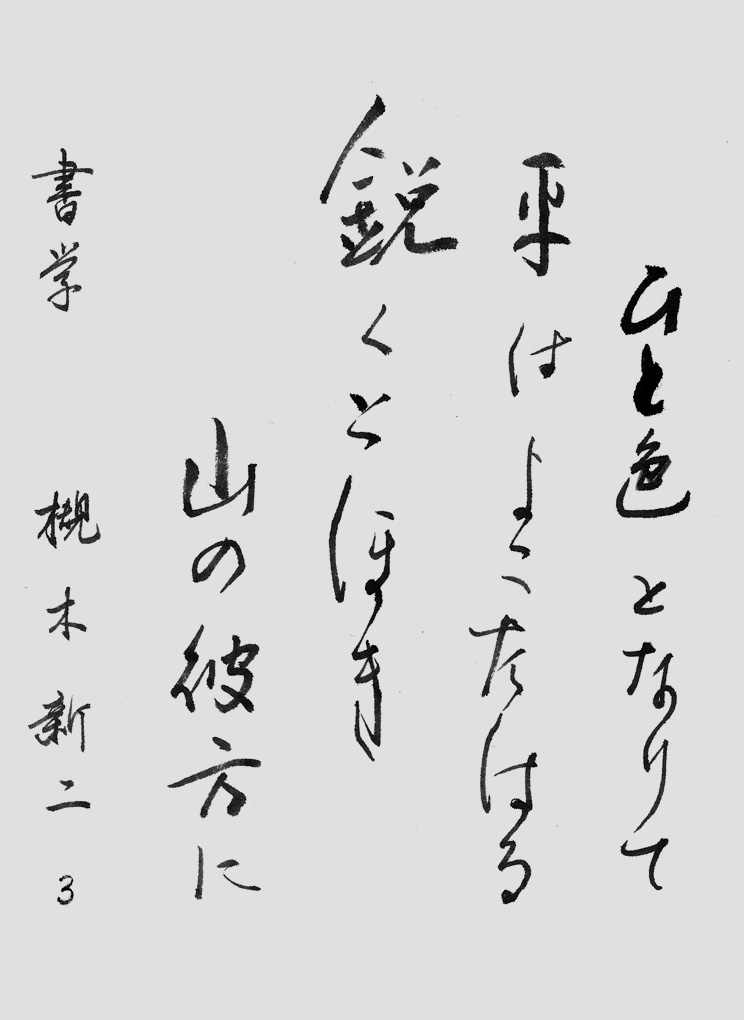 ひと色となりて
平はよこたはる
鋭くとほき
山の彼方に
書学 槻木新二 3